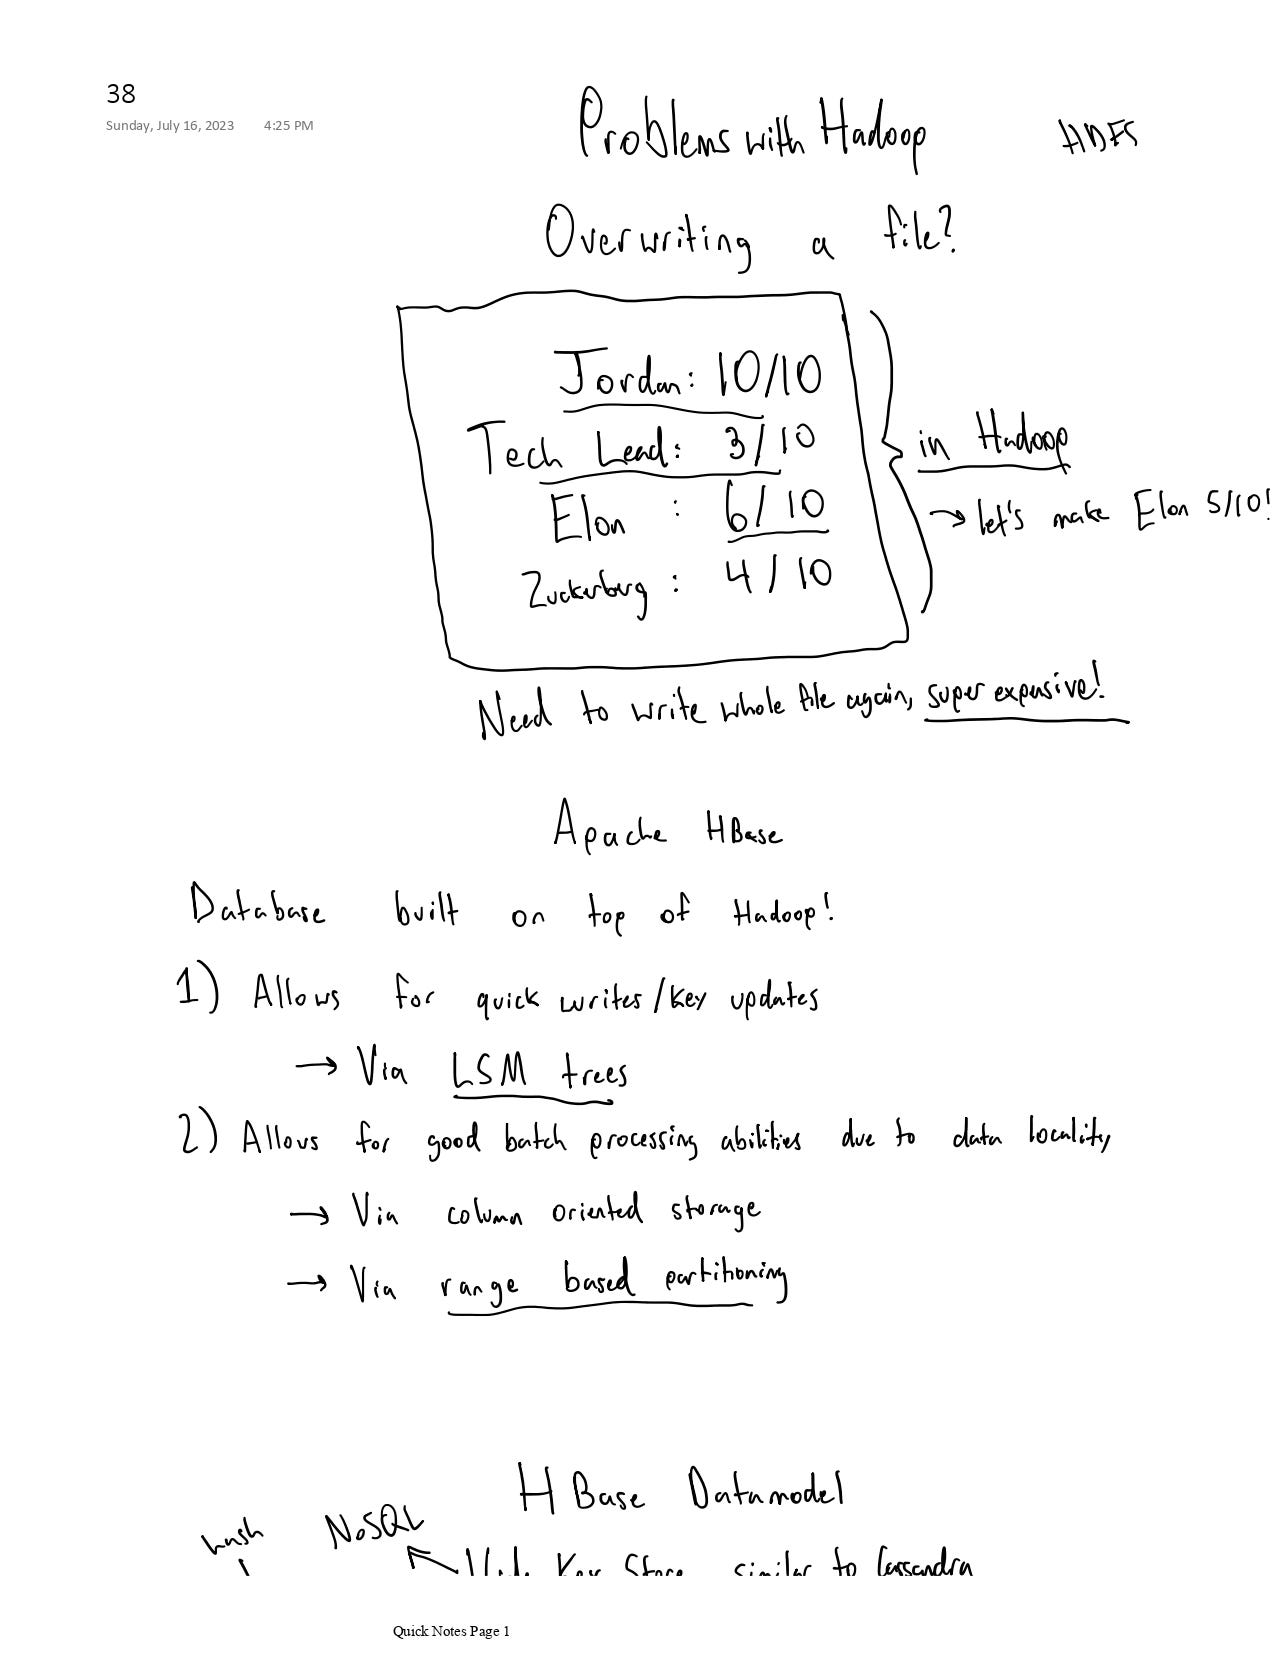 38
Sunday, July 16, 2023 4:25 PM
Problems with Hadoop HDFS
Overwriting a file?
Jordan: 10/10
Tech Lead: 3/10
Elon : 6/10
Zuckerberg : 4/10
in Hadoop
→ let's make Elon 5/10!
Need to write whole file again, super expensive!
Apache HBase
Database built on top of Hadoop!
1) Allows for quick writes/key updates
→ Via LSM trees
2) Allows for good batch processing abilities due to data locality
→ Via column oriented storage
→ Via range based partitioning
HBase Datamodel
hash NoSQL
Wide Key Store, similar to Cassandra
Quick Notes Page 1